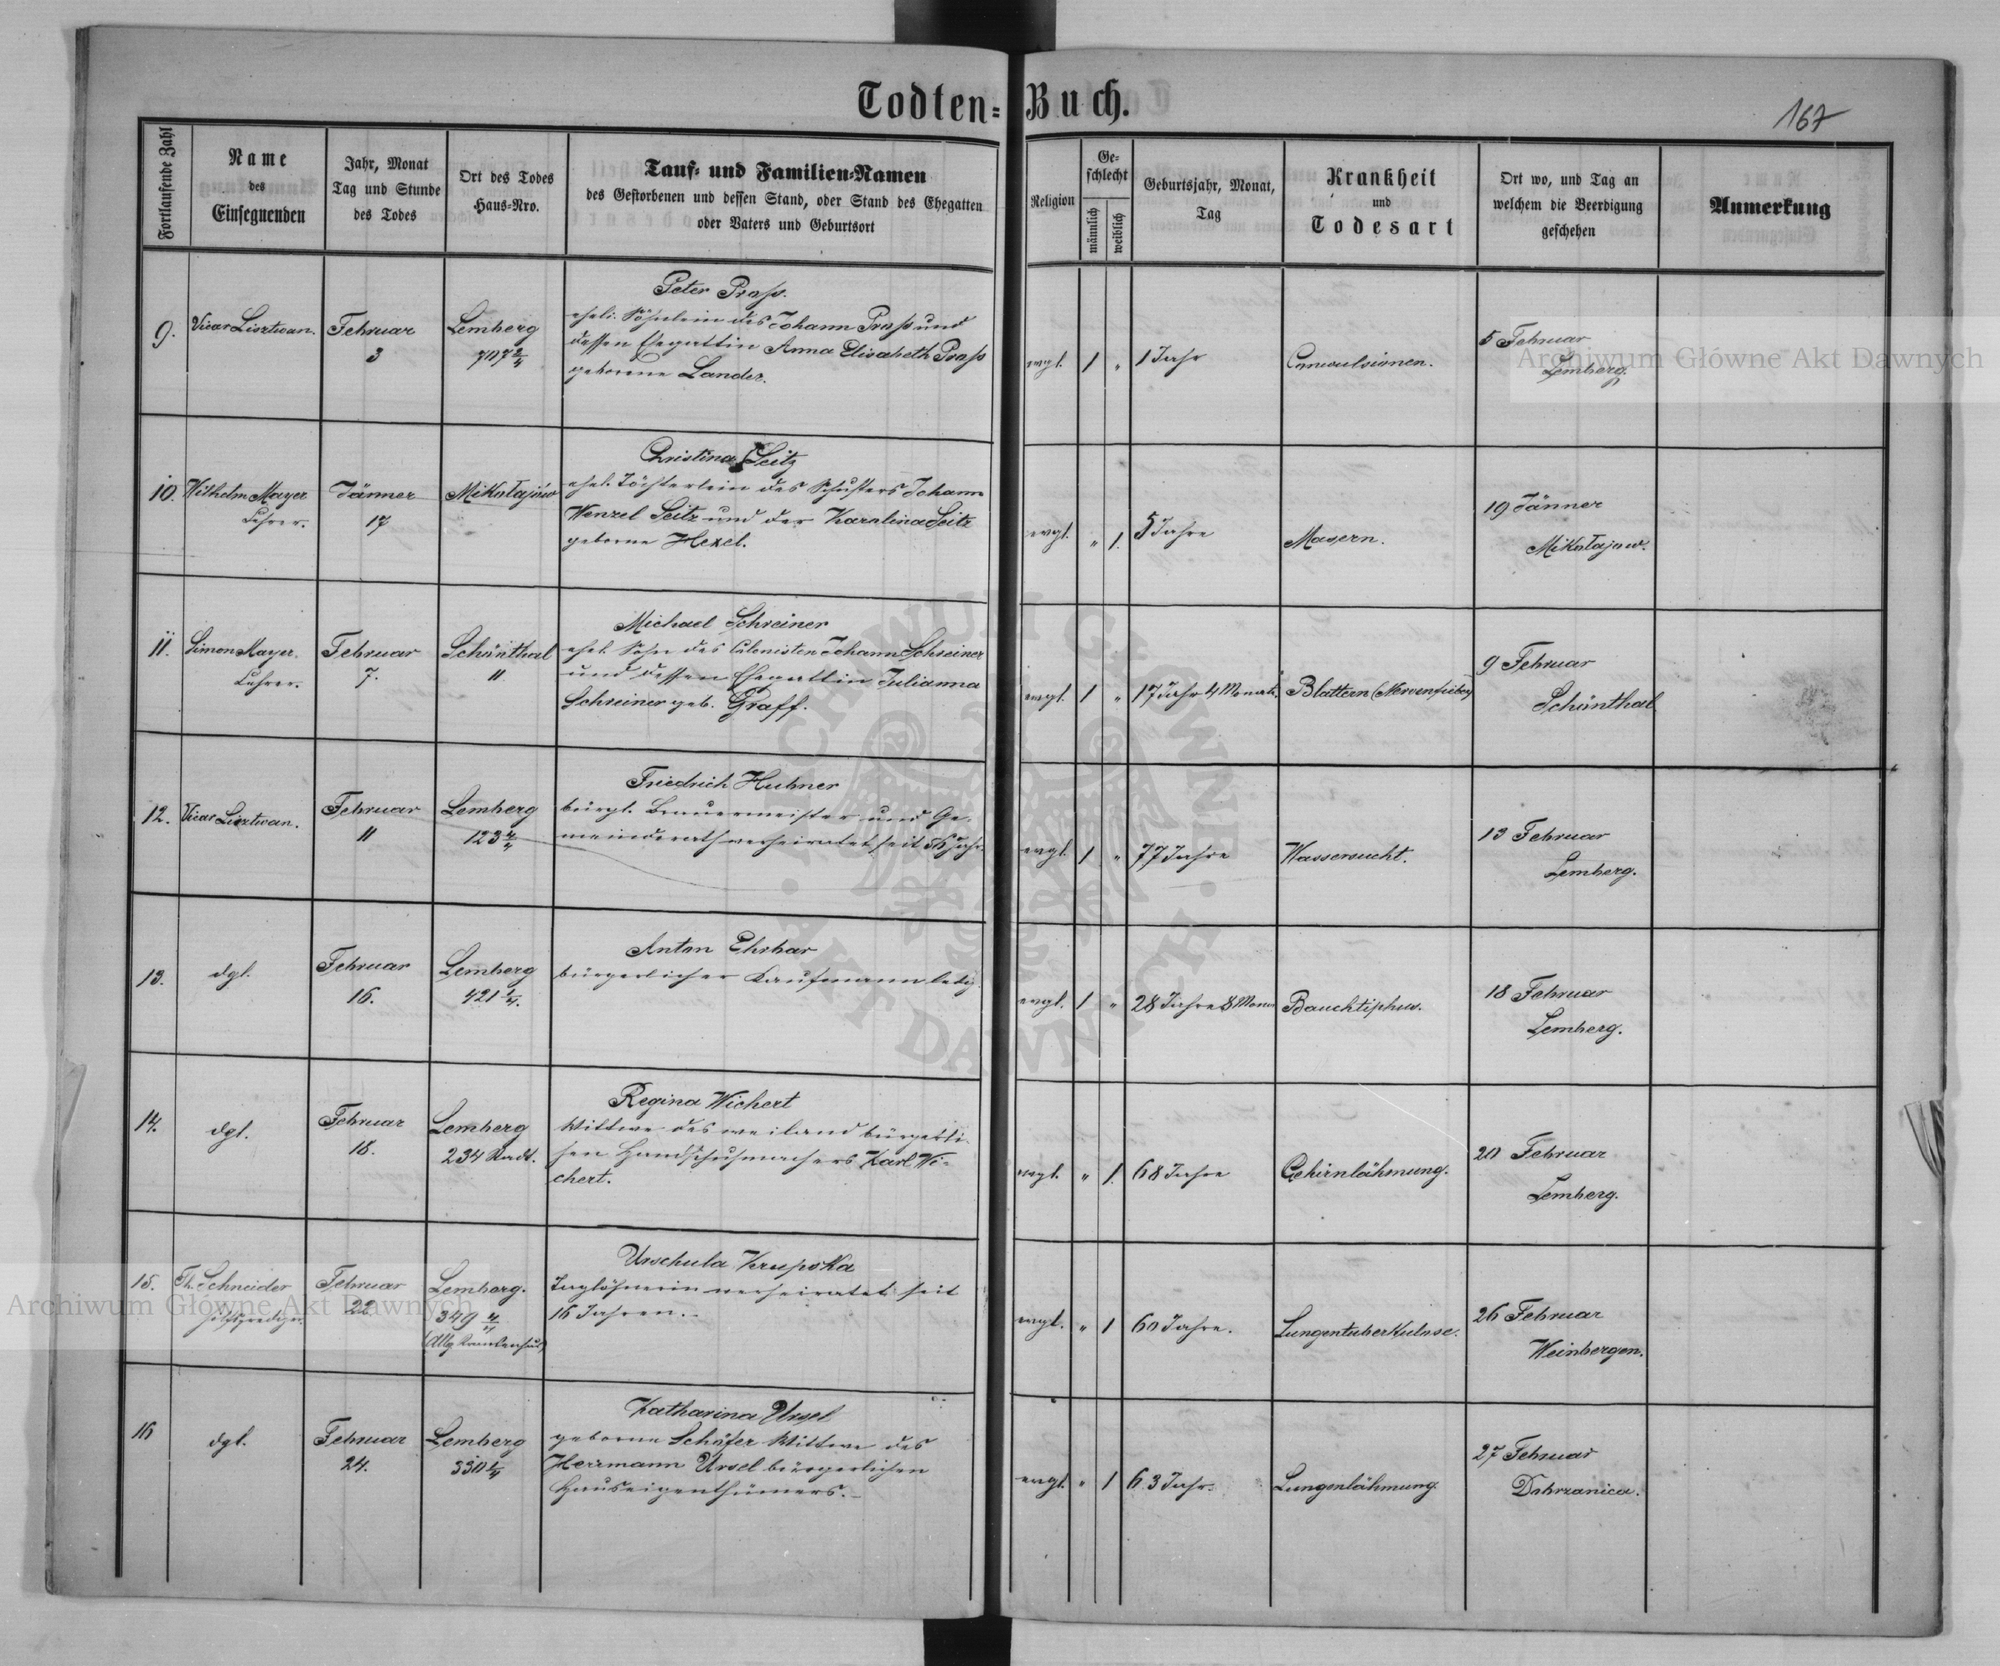 Todten-Buch.
167
Fortlaufende Zahl
Name
des
Einsegnenden
Jahr, Monat
Tag und Stunde
des Todes
Ort des Todes
Haus-Nro.
Tauf- und Familien-Namen
des Gestorbenen und dessen Stand, oder Stand des Ehegatten
oder Vaters und Geburtsort
Religion
Ge-
schlecht
männlich
weiblich
Geburtsjahr, Monat,
Tag
Krankheit
und
Todesart
Ort wo, und Tag an
welchem die Beerdigung
geschehen
Anmerkung
9.
Vicar Lisztwan.
Februar
3
Lemberg
707 2/4
Peter Prass.
eheli. Söhnlein des Johann Prass und
dessen Ehegattin Anna Elisabeth Prass
geborene Lander.
evgl. 1 " 1 Jahr
Convulsionen.
5 Februar
Lemberg.
10.
Wilhelm Mayer
Lehrer.
Jänner
17
Mikołajów
Christina Seitz
ehel. Töchterlein des Schusters Johann
Wenzel Seitz und der Karolina Seitz
geborne Hexel.
evgl. " 1. 5 Jahre
Masern.
19 Jänner
Mikołajow.
11.
Simon Mayer
Lehrer.
Februar
7.
Schönthal
11
Michael Schreiner
ehel. Sohn des Colonisten Johann Schreiner
und dessen Ehegattin Julianna
Schreiner geb. Graff.
evgl. 1 " 17 Jahr 4 Monat.
Blattern (Nervenfieber)
9 Februar
Schönthal
12.
Vicar Lisztwan.
Februar
11
Lemberg
123 4/4
Friedrich Hubner
bürgl. Brauermeister und Ge-
meinderath verheiratet seit 56 Jahr.
evgl. 1 " 77 Jahre
Wassersucht.
13 Februar
Lemberg.
13.
dgl.
Februar
16.
Lemberg
421 1/4.
Anton Ehrhar
bürgerlicher Kaufmann ledig.
evgl. 1 " 28 Jahre 8 Mona
Bauchtiphus.
18 Februar
Lemberg.
14.
dgl.
Februar
18.
Lemberg
234 Stadt.
Regina Wichert
Wittwe des weiland bürgerli-
chen Handschuhmachers Karl Wi-
chert.
evgl. " 1. 68 Jahre
Gehirnlähmung.
20 Februar
Lemberg.
15.
Th. Schneider
Hilfsprediger.
Februar
22
Lemberg.
349 4/4
(Allg. Krankenhaus)
Urschula Krupska
Taglöhnerin verheiratet seit
16 Jahren.
evgl. " 1 60 Jahre.
Lungentuberkulose.
26 Februar
Weinbergen.
16
dgl.
Februar
24.
Lemberg
330 1/4
Katharina Ursel
geborne Schäfer Wittwe des
Herrmann Ursel bürgerlichen
Hauseigenthümers.
evgl. " 1 63 Jahr.
Lungenlähmung.
27 Februar
Dobrzanica.
Archiwum Główne Akt Dawnych
Archiwum Główne Akt Dawnych
ARCHIWUM GŁÓWNE · AKT DAWNYCH ·